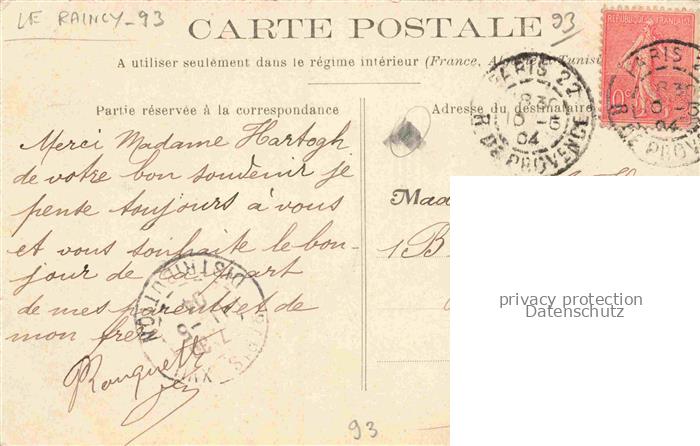 LE RAINCY_93
CARTE POSTALE
93
A utiliser seulement dans le régime intérieur (France, Algérie, Tunisie
REPUBLIQUE FRANÇAISE
Partie réservée à la correspondance
Adresse du destinataire
PARIS 22
8 30
10 - 5
04
R. DE PROVENCE
PARIS
04
R. DE PROVENCE
Merci Madame Hartogh
de votre bon souvenir je
pense toujours à vous
et vous souhaite le bon-
jour de ca part
de mes parents et de
mon frere
Rouquette
DISTRIBUTION
PARIS XVII
Mada
1 B
privacy protection
Datenschutz
93